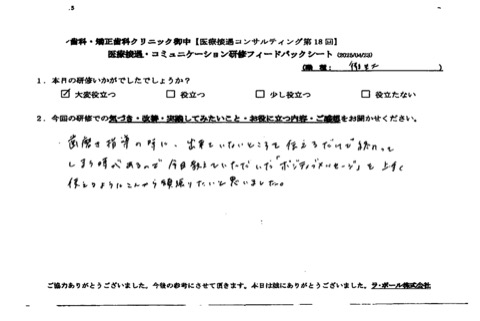 歯科・矯正歯科クリニック御中【医療接遇コンサルティング第18回】
医療接遇・コミュニケーション研修フィードバックシート (2025/04/23)
(職種: 衛生士 )
1. 本日の研修いかがでしたでしょうか?
☑ 大変役立つ □ 役立つ □ 少し役立つ □ 役立たない
2. 今回の研修での気づき・改善・実践してみたいこと・お役に立つ内容・ご感想をお聞かせください。
歯磨き指導の時に、出来ていないところを伝えるだけで終わって
しまう時があるので今日教えていただいた「ポジティブメッセージ」を上手く
使えるようにこれから頑張りたいと思いました。
ご協力ありがとうございました。今後の参考にさせて頂きます。本日は誠にありがとうございました。ラ・ポール株式会社